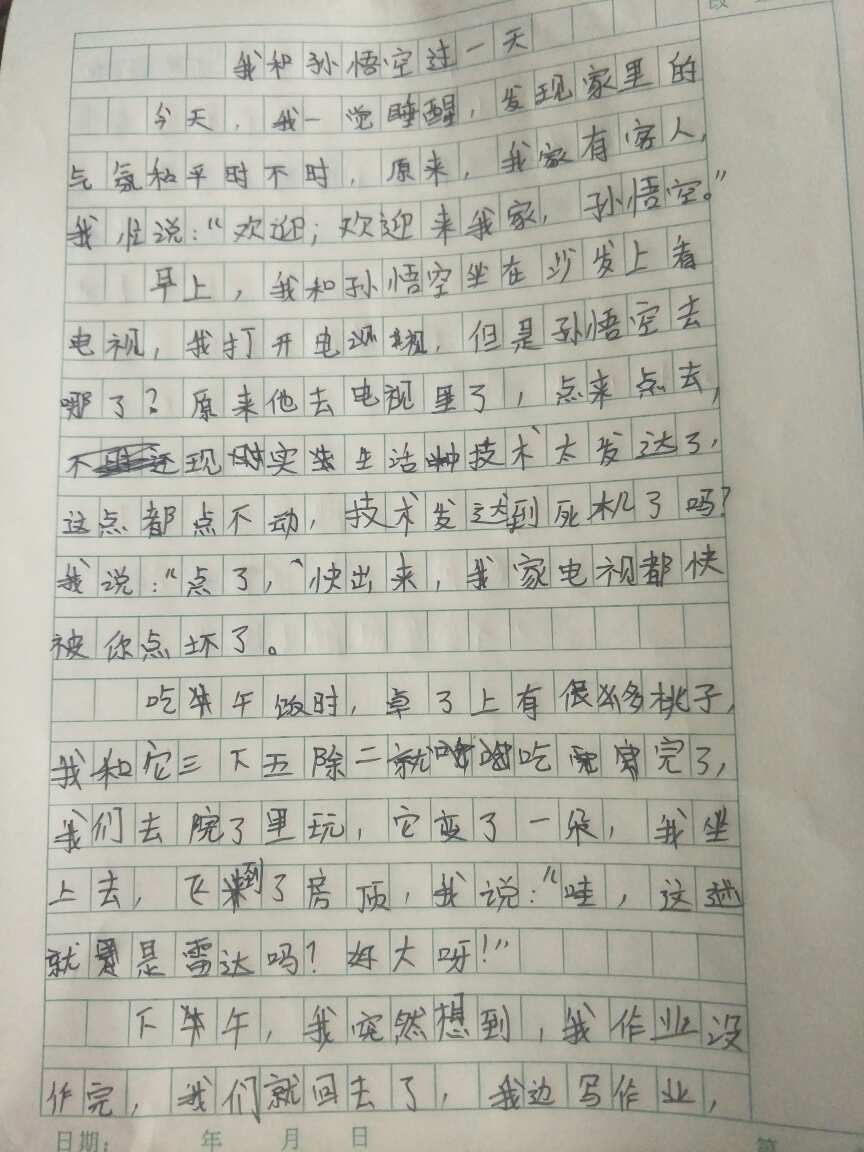 我和孙悟空过一天
今天，我一觉睡醒，发现家里的
气氛和平时不时，原来，我家有客人，
我忙说：“欢迎；欢迎来我家，孙悟空。”
早上，我和孙悟空坐在沙发上看
电视，我打开电视，但是孙悟空去
哪了？原来他去电视里了，点来点去，
不现实生活技术太发达了，
这点都点不动，技术发达到死机了吗？
我说：“点了，快出来，我家电视都快
被你点坏了。
吃午饭时，卓了上有很多桃子，
我和它三下五除二就吃完了，
我们去院了里玩，它变了一朵，我坐
上去，飞到了房顶，我说：“哇，这
就是雷达吗？好大呀！”
下午，我突然想到，我作业没
作完，我们就回去了，我边写作业，
日期： 年 月 日